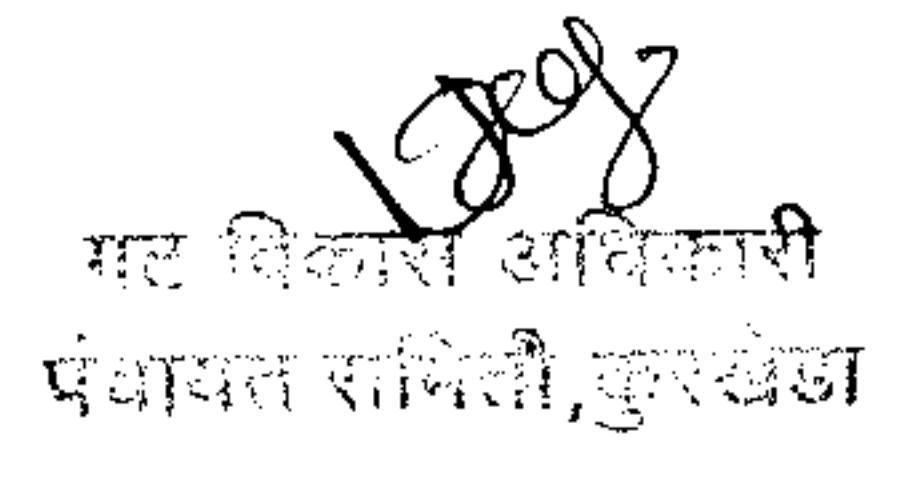 गट विकास अधिकारी
पंचायत समिती,कुरखेडा